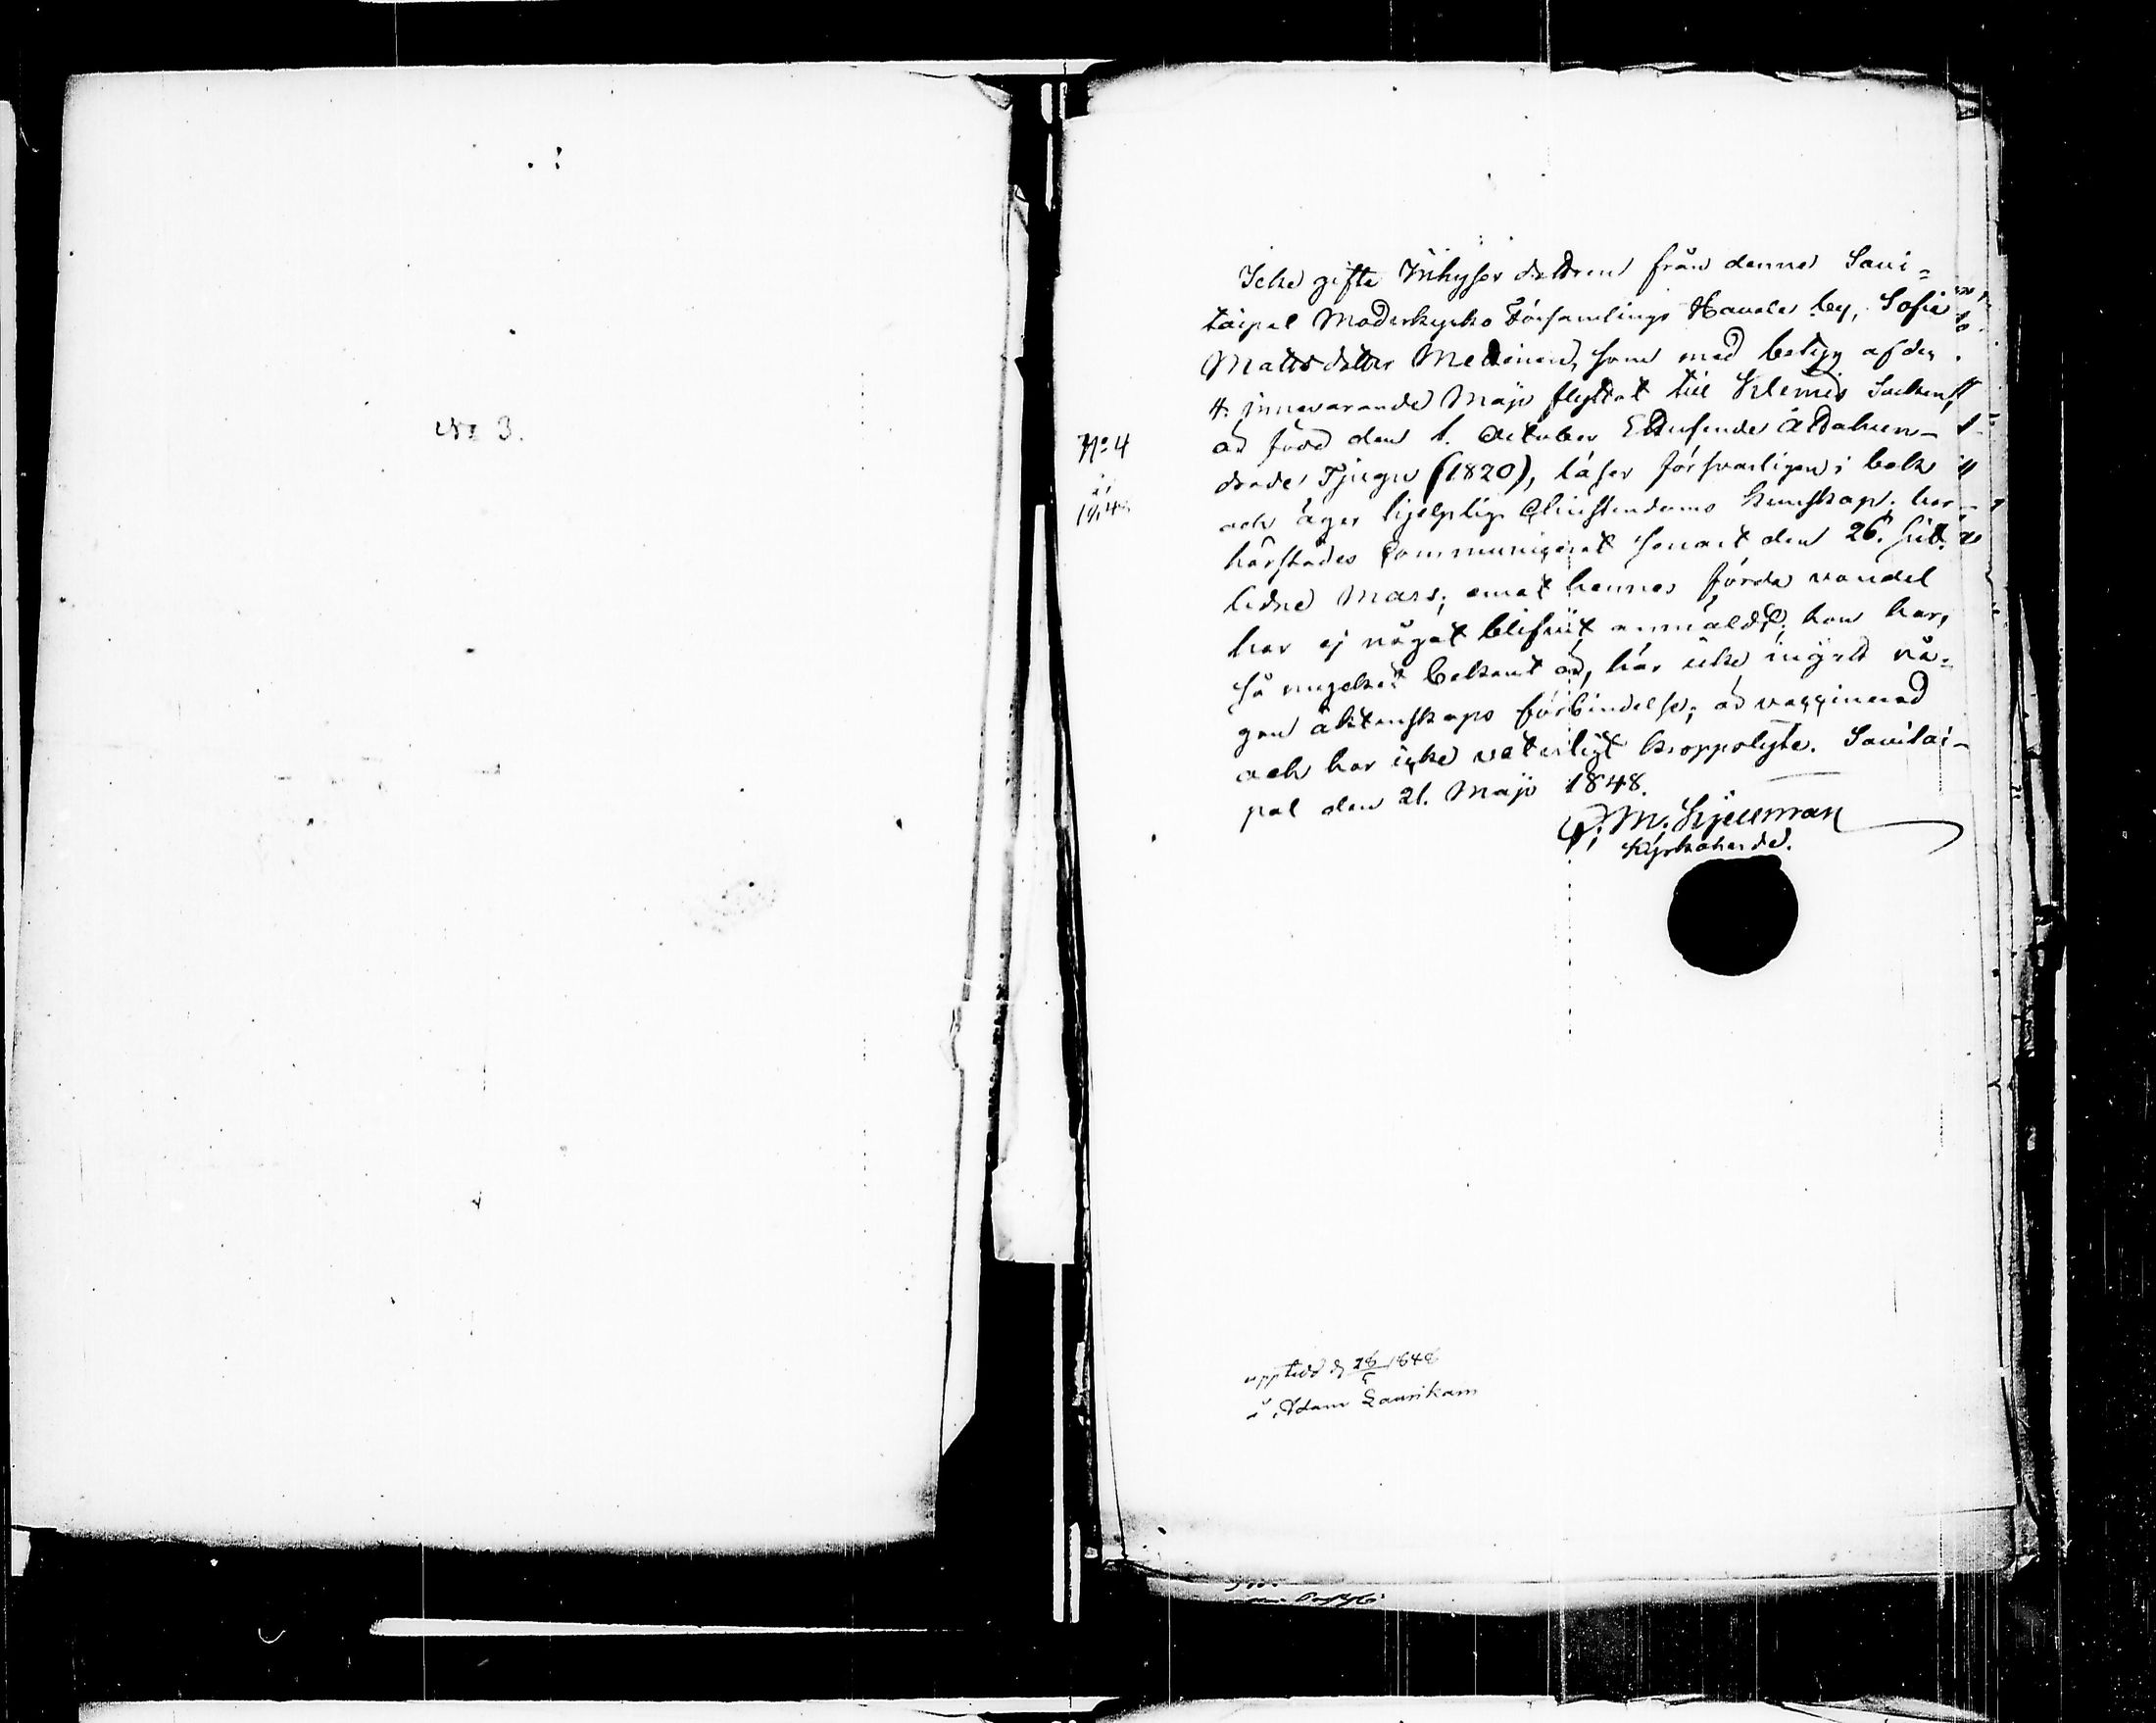 No 3.
No 4
Icke gifta Inhyses dottren från denne Savi=
taipal Moderkyrko Församlings Havola by, Sofia
Matts dotter Mellonen, som med betyg af den
4. innevarande Majo flyttat till Klemis Sucken,
är född den 1. October Ettusende åttahun-
drade Tjugu (1820), läser försvarligen i bok
och äger hjelplig Christendoms kunskap; har
härstädes Communicerat senast den 26. sist.
lidne Mars; emot hennes förda vandel
har ej något blifvit anmäldt; hon har,
så mycket bekant är, här icke ingått nå-
gon äktenskaps förbindelse; är vaccinerad
och har icke veterligt kroppslyte. Savitai-
pal den 21. Majo 1848.
M. Kjellman
Kyrkoherde.
upptedd d 28/5 1848
å Adam Laurikain